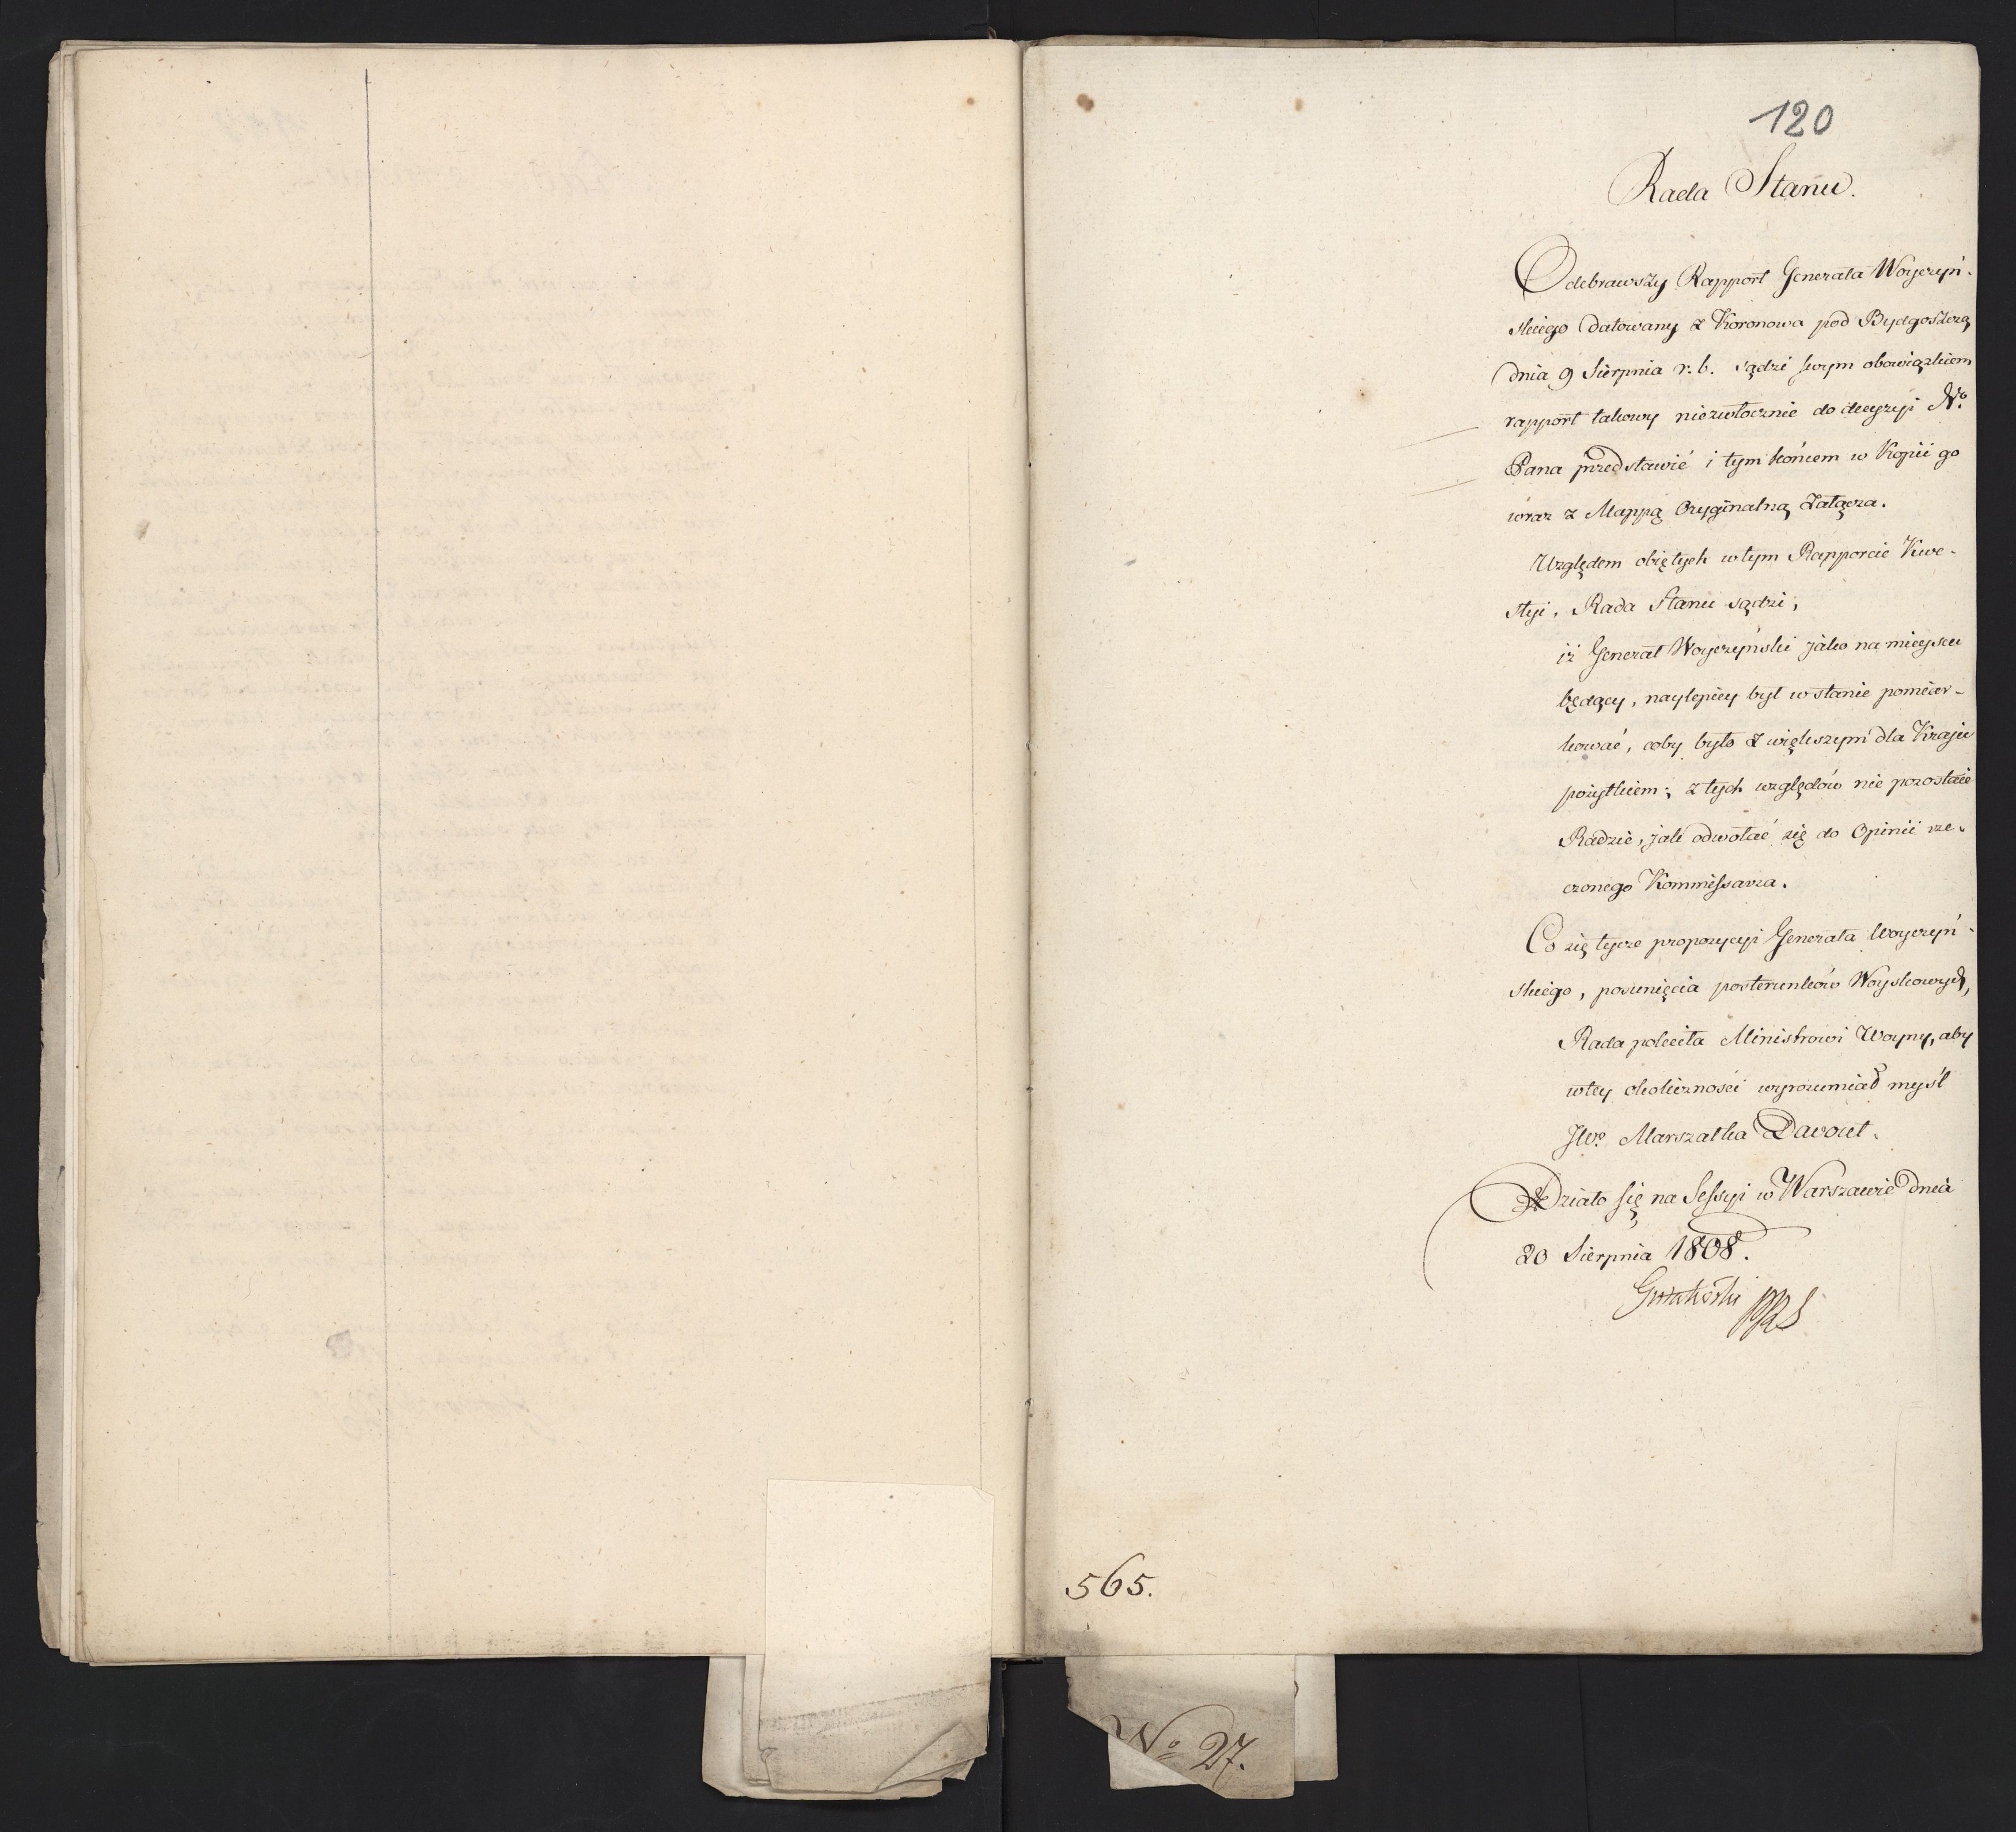 120
Rada Stanu.
Odebrawszy Rapport Generała Woyczyń-
skiego datowany z Koronowa pod Bydgoszczą
dnia 9 Sierpnia r. b. sądzi swym obowiązkiem
rapport takowy niezwłocznie do decyzyi N.o
Pana przedstawić i tym końcem w Kopii go
wraz z Mappą Oryginalną załącza.
Względem obiętych w tym Rapporcie Kwe-
styi, Rada Stanu sądzi,
iż Generał Woyczyński jako na mieyscu
będący, naylepiey był w stanie pomiar-
kować, coby było z większym dla Kraju
pożytkiem; z tych względów nie pozostaie
Radzie, jak odwołać się do Opinii rze-
czonego Kommissarza.
Co się tycze propozycyi Generała Woyczyń-
skiego, posunięcia posterunków Woyskowych,
Rada poleciła Ministrowi Woyny, aby
w tey okoliczności wyrozumiał myśl
JW.o Marszałka Davout.
Działo się na Sessyi w Warszawie dnia
20 Sierpnia 1808.
Gutakowski PRS
565.
No 27.